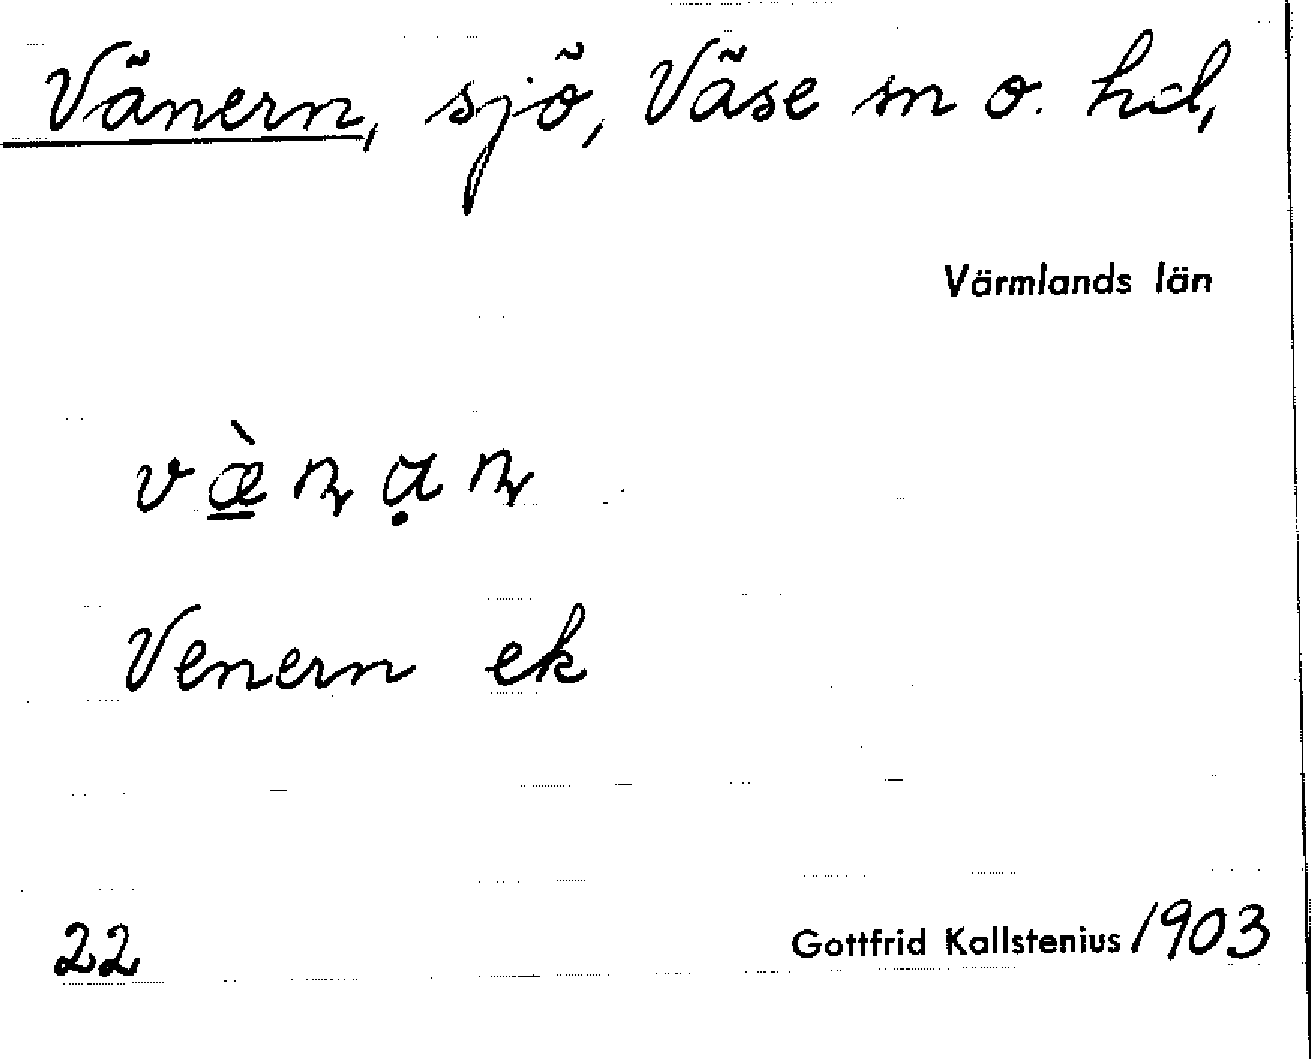 Vänern, sjö, Väse sn o. hd,
Värmlands län
væ̱̀nạn
Venern ek
22 Gottfrid Kallstenius 1903